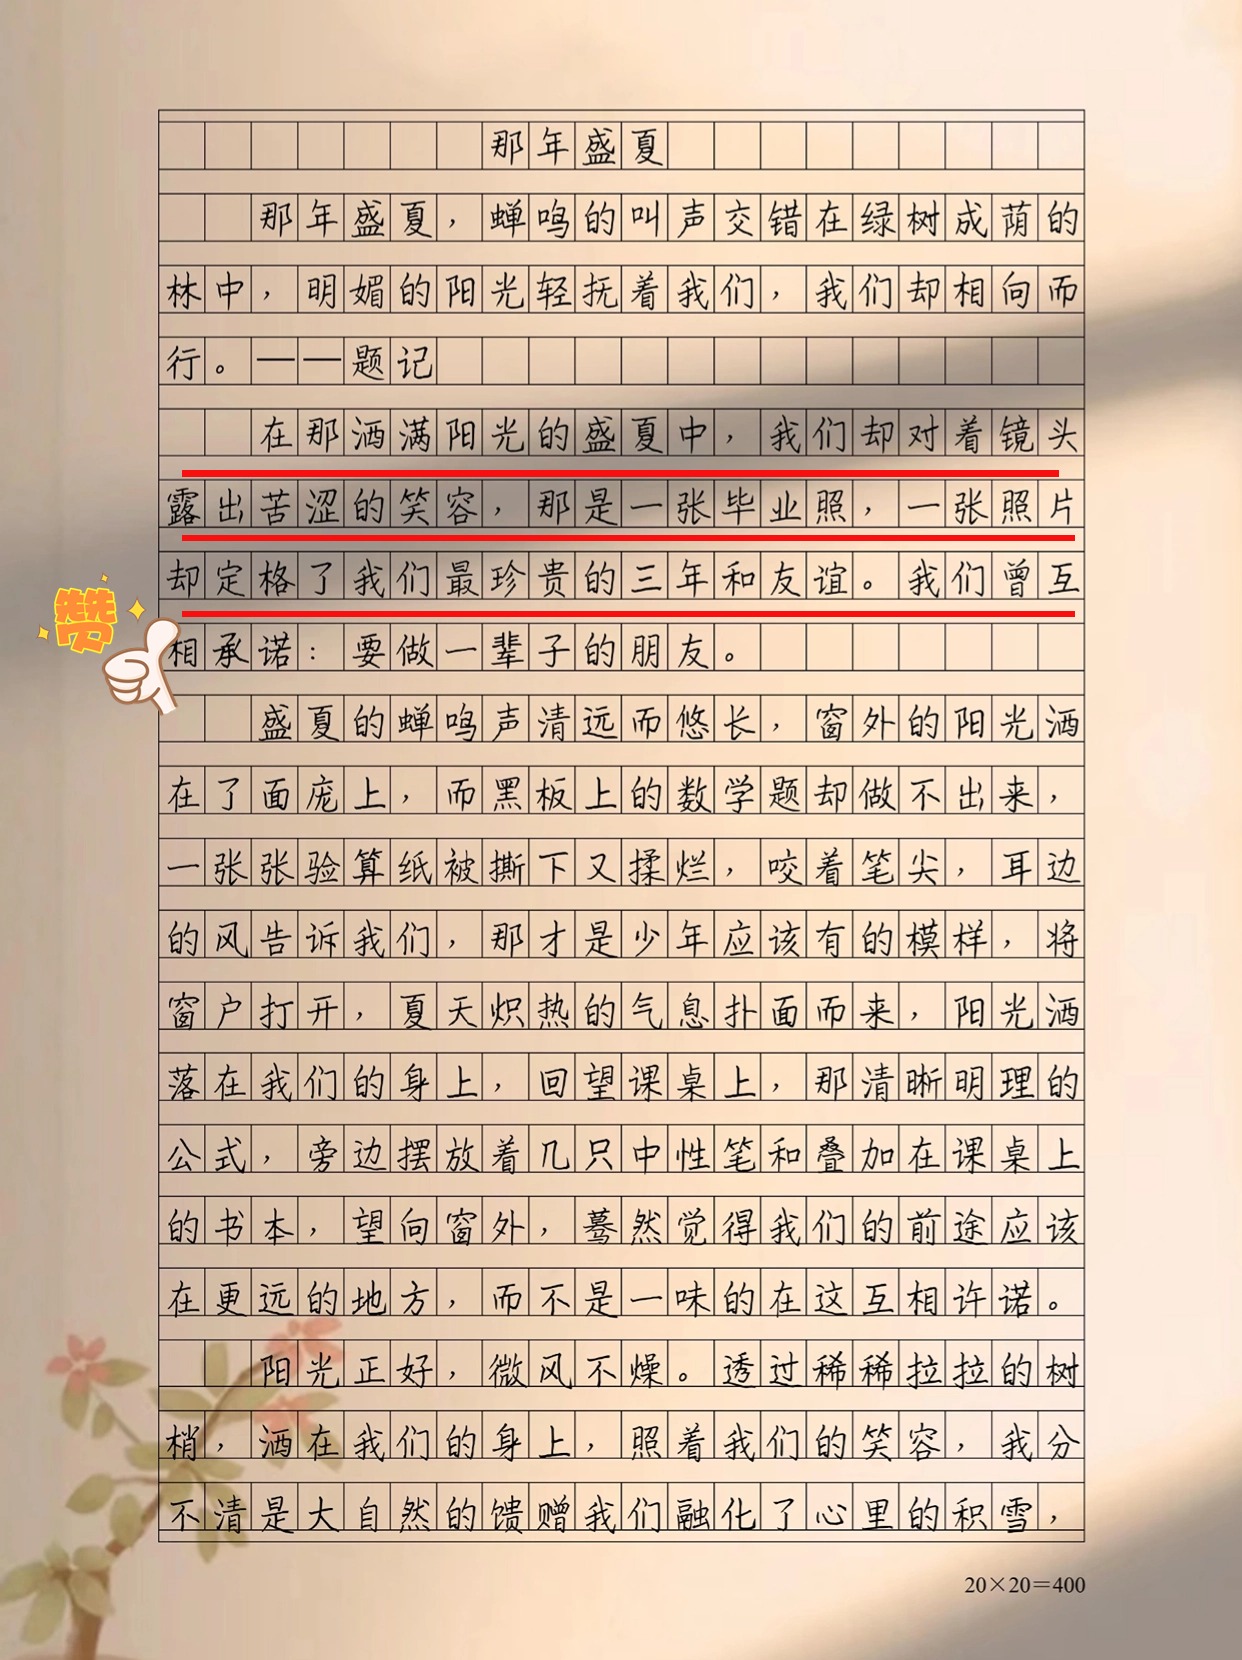 那年盛夏
那年盛夏，蝉鸣的叫声交错在绿树成荫的
林中，明媚的阳光轻抚着我们，我们却相向而
行。——题记
在那洒满阳光的盛夏中，我们却对着镜头
露出苦涩的笑容，那是一张毕业照，一张照片
却定格了我们最珍贵的三年和友谊。我们曾互
赞
相承诺：要做一辈子的朋友。
盛夏的蝉鸣声清远而悠长，窗外的阳光洒
在了面庞上，而黑板上的数学题却做不出来，
一张张验算纸被撕下又揉烂，咬着笔尖，耳边
的风告诉我们，那才是少年应该有的模样，将
窗户打开，夏天炽热的气息扑面而来，阳光洒
落在我们的身上，回望课桌上，那清晰明理的
公式，旁边摆放着几只中性笔和叠加在课桌上
的书本，望向窗外，蓦然觉得我们的前途应该
在更远的地方，而不是一味的在这互相许诺。
阳光正好，微风不燥。透过稀稀拉拉的树
梢，洒在我们的身上，照着我们的笑容，我分
不清是大自然的馈赠我们融化了心里的积雪，
20×20=400